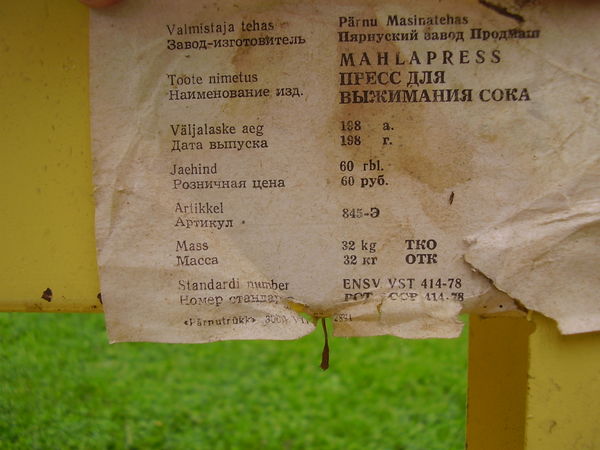 Valmistaja tehas Pärnu Masinatehas
Завод-изготовитель Пярнуский завод Продмаш
MAHLAPRESS
Toote nimetus ПРЕСС ДЛЯ
Наименование изд. ВЫЖИМАНИЯ СОКА
Väljalaske aeg 198 a.
Дата выпуска 198 г.
Jaehind 60 rbl.
Розничная цена 60 руб.
Artikkel
Артикул 845-Э
Mass 32 kg TKO
Масса 32 кг ОТК
Standardi number ENSV VST 414-78
Номер 414-78
«Pärnutrükk»